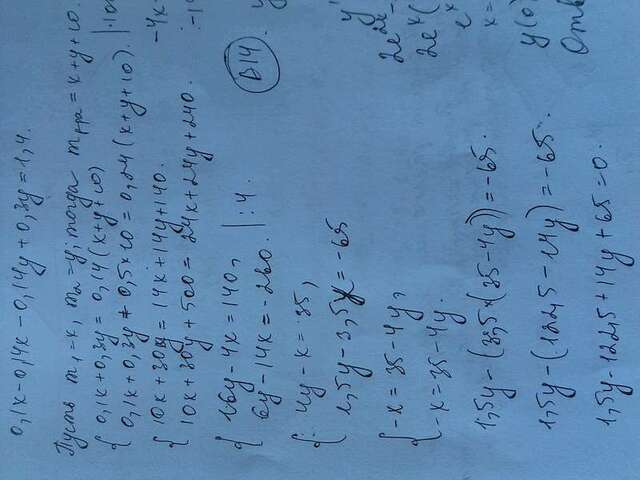 0,1x-0,14x-0,14y+0,3y=1,4.
Пусть m₁-x, m₂-y, тогда mр-ра = x+y+10.
{ 0,1x+0,3y=0,14(x+y+10)
0,1x+0,3y+0,5*10=0,24(x+y+10).
{ 10x+30y=14x+14y+140.
10x+30y+500=24x+24y+240.
-4x
{ 16y-4x=140, | :4.
6y-14x=-260.
B14.
{ 4y-x=35,
1,5y-3,5x=-65
{ -x=35-4y,
-x=35-4y.
1,5y-(35,5*(35-4y))=-65.
1,5y-(122,5-14y)=-65.
1,5y-122,5+14y+65=0.
y
2e
2e^x(
e^x
x=
y(0)
Отв